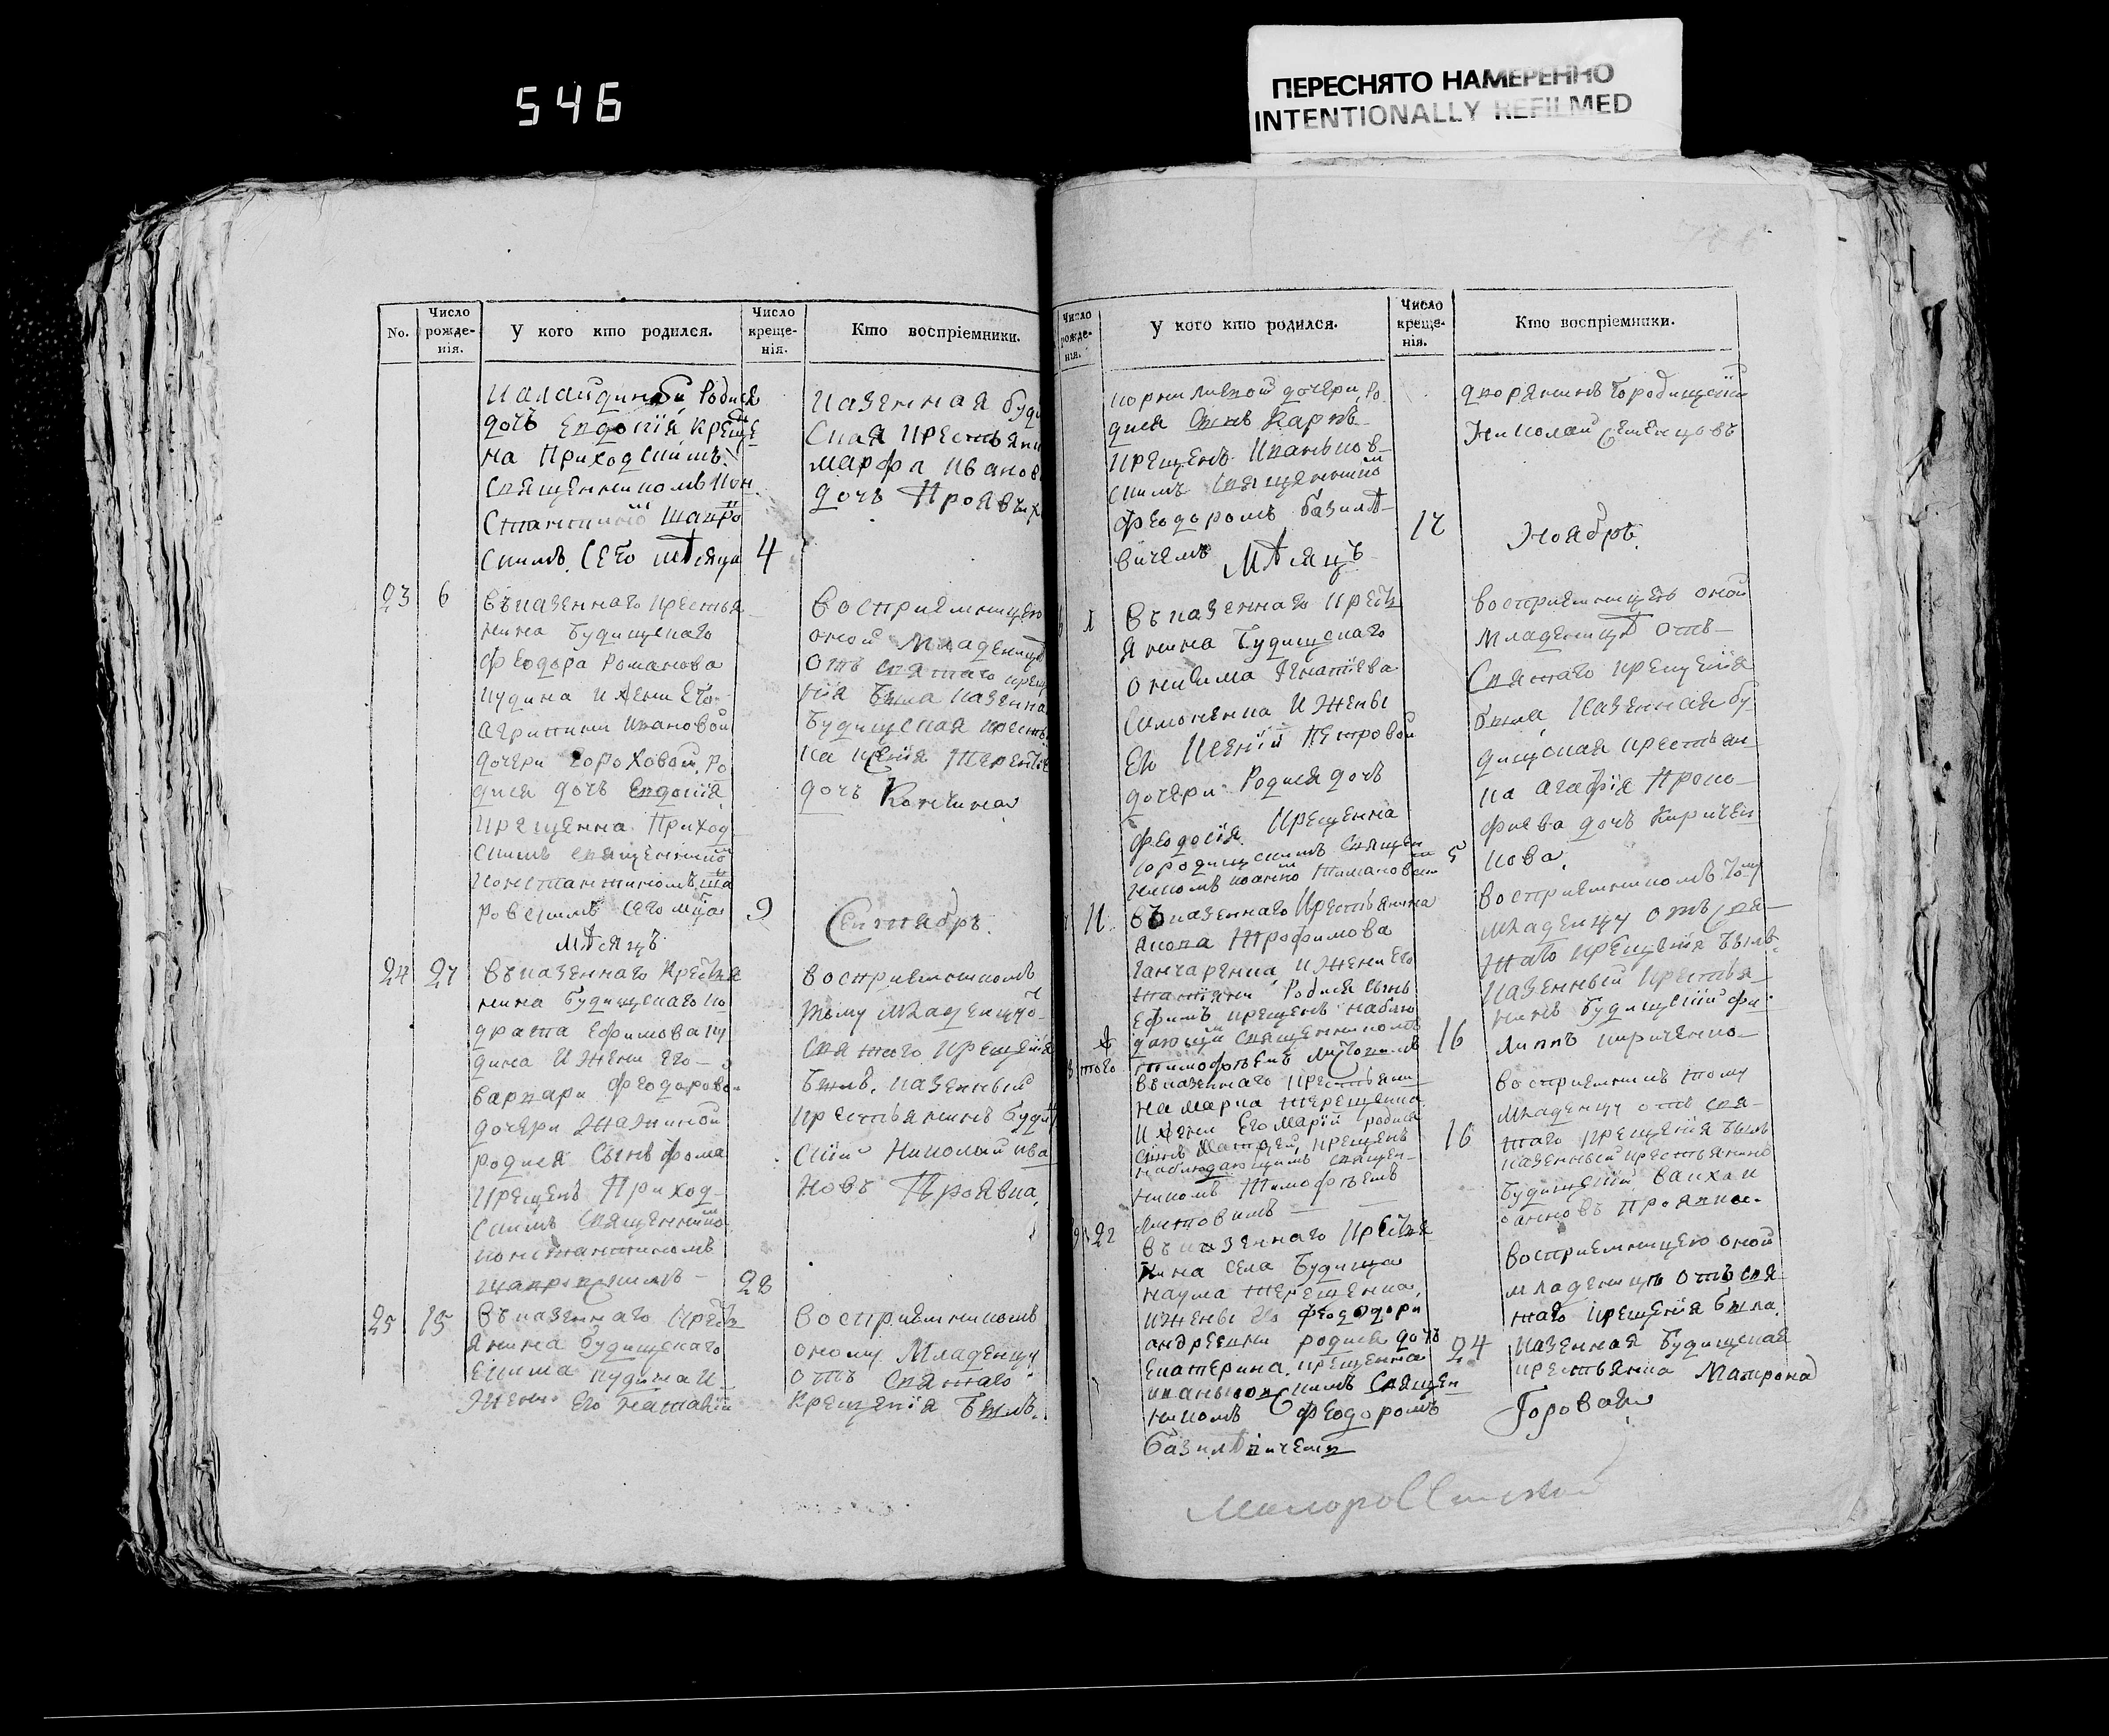 546
ПЕРЕСНЯТО НАМЕРЕННО
INTENTIONALLY REFILMED
No.
Число рожде-нія.
У кого кто родился.
Число креще-нія.
Кто воспріемники.
родися
дочь Евдокія креще
на Приходскимъ
священникомъ Кон
скимъ. Сего мѣсяца
4
казенная буди
ская крестьянк
Марфа Иванов
дочь
23
6
въ казеннаго крестья
нина будищскаго
Феодора Романова
Кудина и жени Его
Агрипини Ивановой
дочери Гороховой, Ро
дися дочь Евдокія
крещенна Приход
скимъ священнико
Константиномъ Ша
ровскимъ сего мца
9
воспріемницею
оной младеници
отъ святаго крещ
нія была казенна
будищская крест
ка Ксенія Терентіе
дочь
мѣсяцъ
Сентябрь.
24
27
въ казеннаго крестья
нина будищскаго Ко
драта Ефимова Ку
дина и жени его
варвари Феодоров
дочери
родися сынъ Фома
крещенъ Приход
скимъ священнико
константиномъ
28
воспріемникомъ
тому младенцу о
святаго крещенія
былъ казенный
крестьянинъ буди
скій Николай ива
новъ Проявка
25
15
въ казеннаго крестья
янина будищскаго
Екима Кудина и
жени Его Наталіи
воспріемникомъ
оному Младенцу
отъ святаго
крещенія былъ.
Число рожде-нія.
У кого кто родился.
Число креще-нія.
Кто воспріемники.
корниліевой дочери, Ро
дися сынъ Карпъ
крещенъ Иваньков
скимъ священнико
Феодоромъ Базилѣ
вичемъ
17
дворянинъ Городищскій
Николай Семенцовъ
Мѣсяцъ
Ноябрь.
1
въ казеннаго крест
янина будищскаго
Онисима Игнатіева
Симоненка и жены
Его Ксеніи Петровой
дочери Родися дочь
Феодосія. крещенна
городищскимъ священ
никомъ
5
воспріемницею оной
младеници отъ
святаго крещенія
была казенная бу
дищская крестьян
ка Агафія Проко
фиева дочь Киричен
кова.
11
въ казеннаго крестьянина
Якова Трофимова
Ганчаренка и жени Его
Татіяни Родися сынъ
Ефимъ крещенъ наблю
дающи священникомъ
Тимофѣемъ
16
воспріемникомъ тому
младенцу отъ свя
таго крещенія былъ
казенный крестья
нинъ будищскій Фи
липпъ Кириченко
того
въ казеннаго крестьяни
на Марка Терещенка
и жени Его Маріи родися
сынъ Матфей, крещенъ
наблюдающимъ священ
никомъ Тимофѣемъ
16
воспріемникъ тому
младенцу отъ свя
таго крещенія былъ
казенный крестьянинъ
будищскій
22
въ казеннаго крестья
нина села Будища
Наума Терещенка
и жены Его Феодори
андреевни родися дочь
Екатерина крещенна
иваньковскимъ священ
никомъ Феодоромъ
Базилѣвичемъ
24
воспріемницею оной
младеници отъ свя
таго крещенія была
казенная будищская
крестьянка Матрона
Горовая